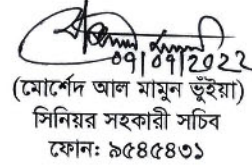 09/09/2022
(মোর্শেদ আল মামুন ভূঁইয়া)
সিনিয়র সহকারী সচিব
ফোন: ৯৫৪৫৪৩১